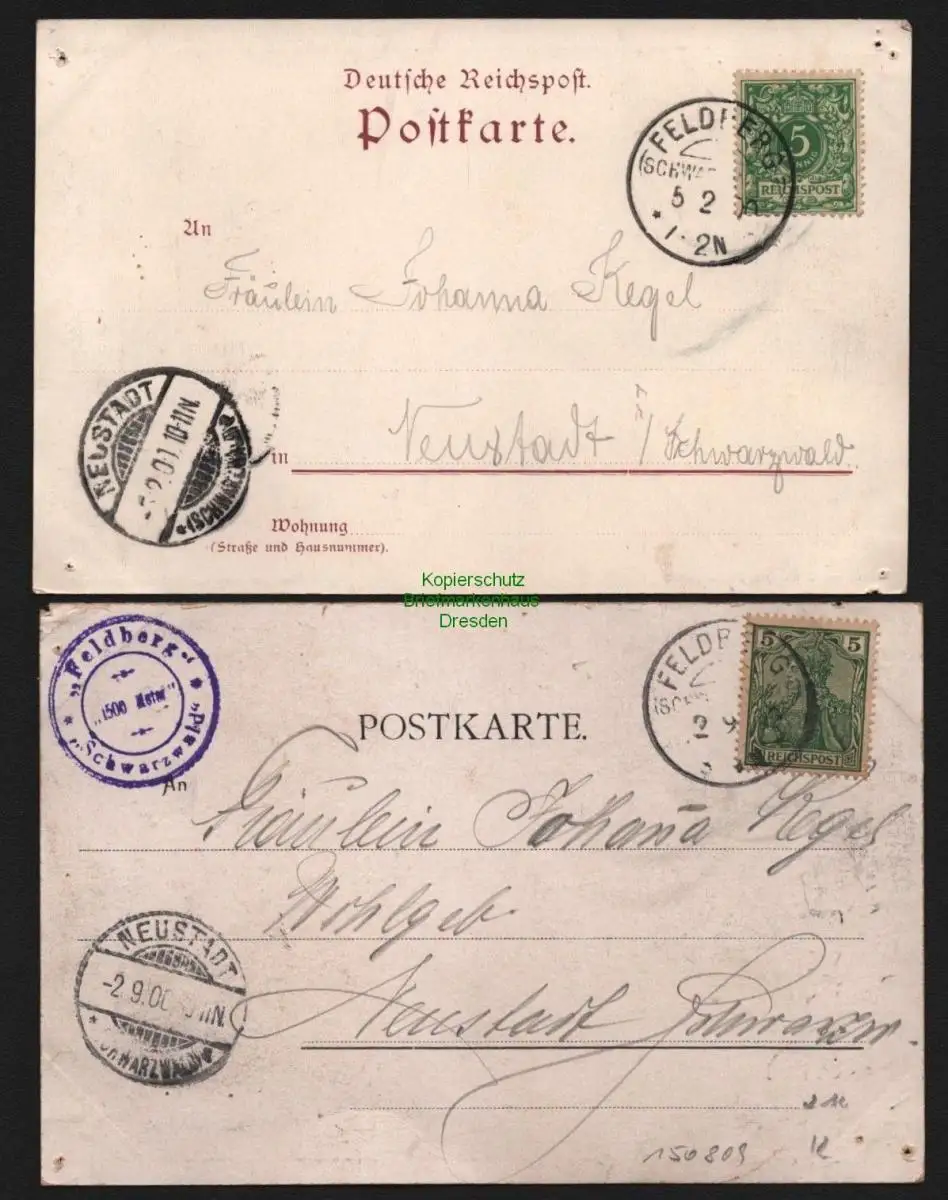 Deutsche Reichspost.
Postkarte.
FELDBERG
(SCHWAR
5 2
1-2N
5
REICHSPOST
An
Fräulein Johanna Kegel
NEUSTADT
2.01.10-11N.
(SCHWARZWALD)
in Neustadt i/Schwarzwald
Wohnung
(Straße und Hausnummer).
Kopierschutz
Briefmarkenhaus
Dresden
„Feldberg“
„1500 Meter“
„Schwarzwald“
FELDBERG
(SCHW
2 9
5 5
REICHSPOST
POSTKARTE.
An
Fräulein Johana Kegel
Wohlgeb
NEUSTADT
-2.9.00
SCHWARZWALD
Neustadt Schwarzw
150809